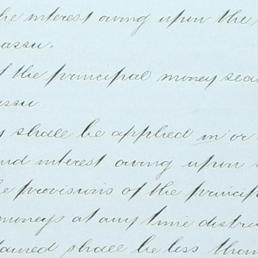 the interest owing upon the
assu.
f the principal money sec
assu
y shall be applied in or
nd interest owing upon
he provisions of the princip
moneys at any time distri
tained shall be less than